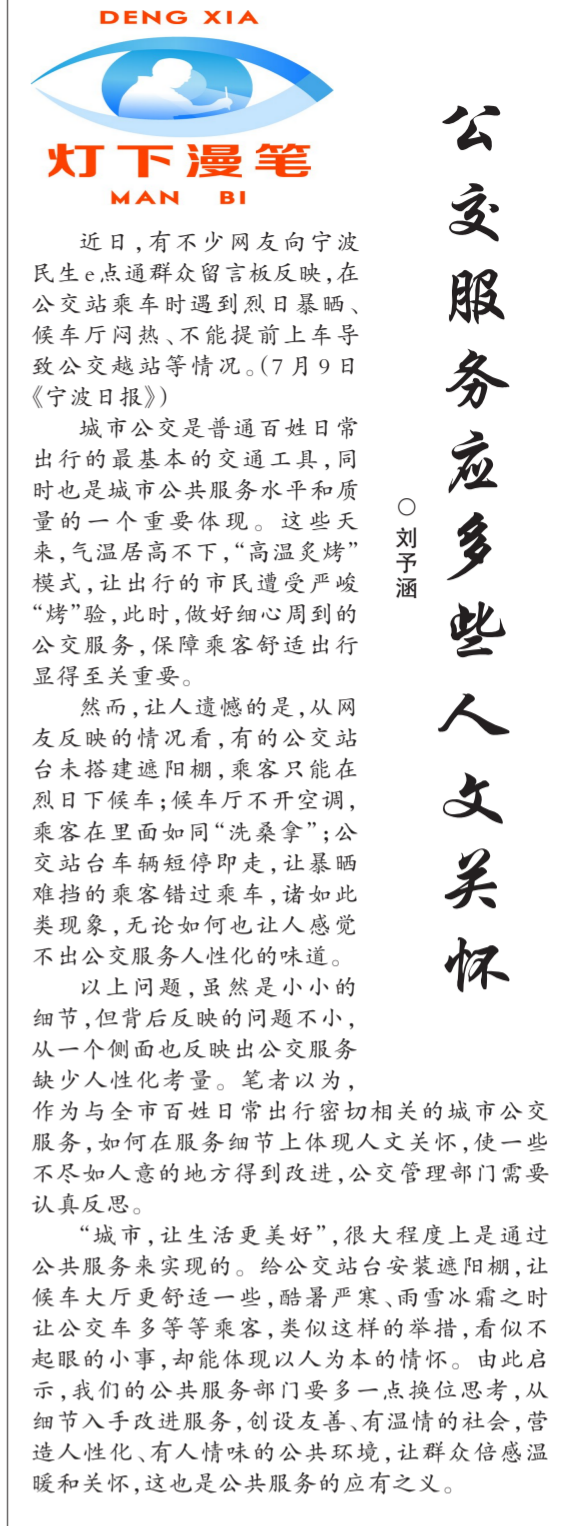 DENG XIA
灯下漫笔
MAN BI
公交服务应多些人文关怀
○刘予涵
近日，有不少网友向宁波
民生e点通群众留言板反映，在
公交站乘车时遇到烈日暴晒、
候车厅闷热、不能提前上车导
致公交越站等情况。（7月9日
《宁波日报》）
城市公交是普通百姓日常
出行的最基本的交通工具，同
时也是城市公共服务水平和质
量的一个重要体现。这些天
来，气温居高不下，“高温炙烤”
模式，让出行的市民遭受严峻
“烤”验，此时，做好细心周到的
公交服务，保障乘客舒适出行
显得至关重要。
然而，让人遗憾的是，从网
友反映的情况看，有的公交站
台未搭建遮阳棚，乘客只能在
烈日下候车；候车厅不开空调，
乘客在里面如同“洗桑拿”；公
交站台车辆短停即走，让暴晒
难挡的乘客错过乘车，诸如此
类现象，无论如何也让人感觉
不出公交服务人性化的味道。
以上问题，虽然是小小的
细节，但背后反映的问题不小，
从一个侧面也反映出公交服务
缺少人性化考量。笔者以为，
作为与全市百姓日常出行密切相关的城市公交
服务，如何在服务细节上体现人文关怀，使一些
不尽如人意的地方得到改进，公交管理部门需要
认真反思。
“城市，让生活更美好”，很大程度上是通过
公共服务来实现的。给公交站台安装遮阳棚，让
候车大厅更舒适一些，酷暑严寒、雨雪冰霜之时
让公交车多等等乘客，类似这样的举措，看似不
起眼的小事，却能体现以人为本的情怀。由此启
示，我们的公共服务部门要多一点换位思考，从
细节入手改进服务，创设友善、有温情的社会，营
造人性化、有人情味的公共环境，让群众倍感温
暖和关怀，这也是公共服务的应有之义。